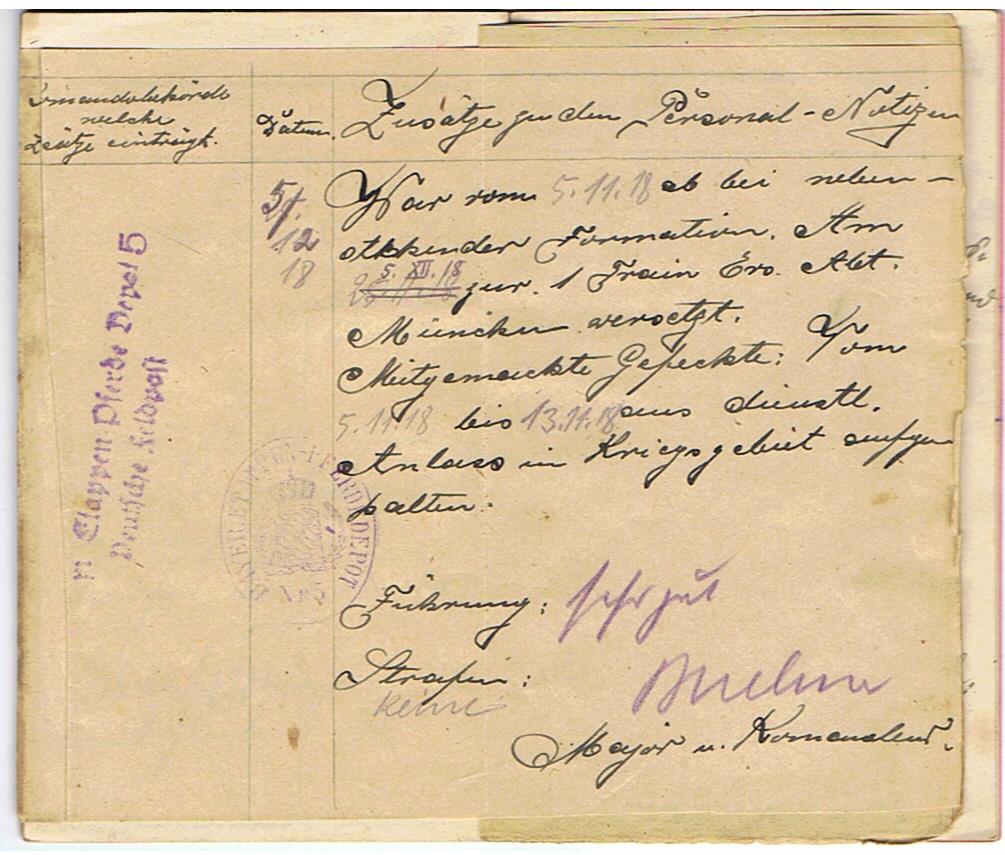 Komandobehörde
welche
Zusätze einträgt.
Datum.
Zusätze zu den Personal-Notizen
5/.
12
18
War vom 5.11.18 ab bei neben-
stehender Formation. Am
5. XII. 18
zur 1 Train Ers. Abt.
München versetzt.
Mitgemachte Gefechte: Vom
5.11.18 bis 13.11.18 aus dienstl.
Anlass in Kriegsgebiet aufge
halten.
Führung: sehr gut
Strafen:
keine
Major u. Komandeur.
Etappen Pferde Depot 5
Deutsche Feldpost
BAYER. ETAPPEN-PFERDE DEPOT
No 5